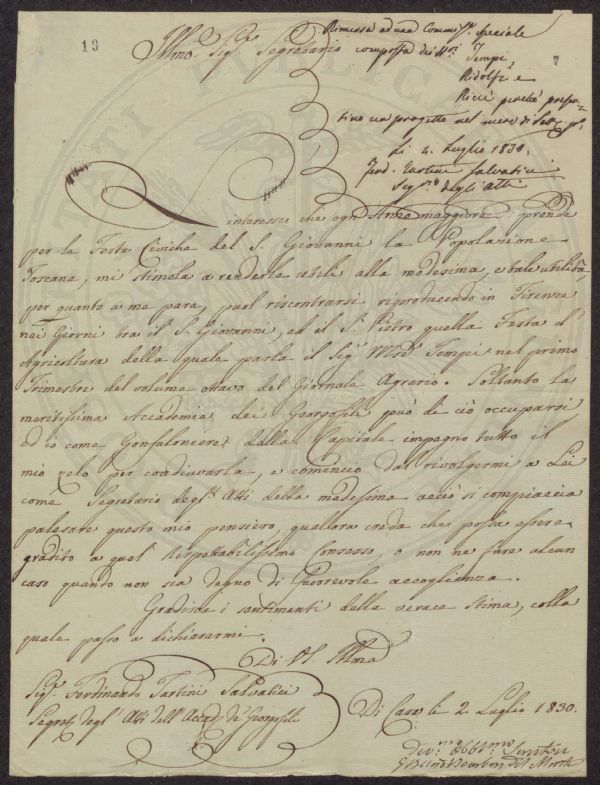 19
Illmo. Sigre. Segretario
Rimessa ad una Commisne. speciale
composta dei SSri.
Tempi,
Ridolfi e
Ricci perché presen-
tino un progetto nel mese di
Li 4. Luglio 1830.
Ferd. Tartini Salvatici
Segrio. degli Atti
L'interesse che ogn'Anno maggiore prende
per le Feste Civiche del S. Giovanni la Popolazione
Toscana, mi stimola a renderle utili alla medesima, e tale utilità,
per quanto a me pare, puol riscontrarsi riproducendo in Firenze
nei Giorni tra il S. Giovanni, ed il S. Pietro quella Festa d'
Agricoltura della quale parla il Sigr. Tempi nel primo
Trimestre del volume ottavo del Giornale Agrario. Soltanto la
meritissima Accademia dei Georgofili può di ciò occuparsi
ed io come Gonfaloniere della Capitale impegno tutto il
mio zelo per coadiuvarla, e comincio dal rivolgermi a Lei
come Segretario degli Atti della medesima acciò si compiaccia
palesare questo mio pensiero, qualora creda che possa essere
gradito a quel Rispettabilissimo Consesso, o non ne fare alcun
caso quando non sia degno di favorevole accoglienza.
Gradisca i sentimenti della verace stima, colla
quale passo a dichiararmi
Di VS. Illma
Sigr. Ferdinando Tartini Salvatici
Segreto. degl'Atti dell'Accadia. de' Georgofili
Di Casa li 2. Luglio 1830.
Devmo. Obblmo. Servitore
Bourbon del Monte